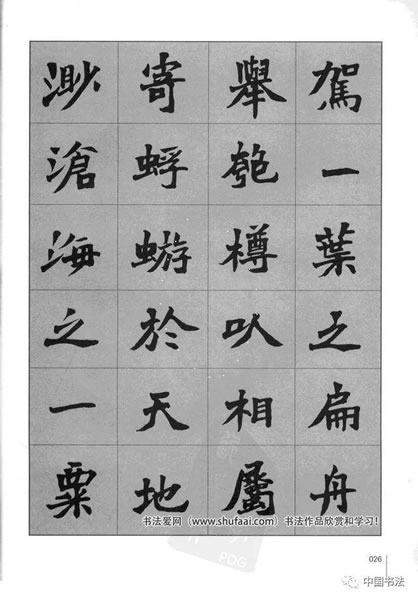 駕一葉之扁舟
舉匏樽以相屬
寄蜉蝣於天地
渺滄海之一粟
书法爱网（www.shufaai.com）书法作品欣赏和学习！
PDG
026
中国书法